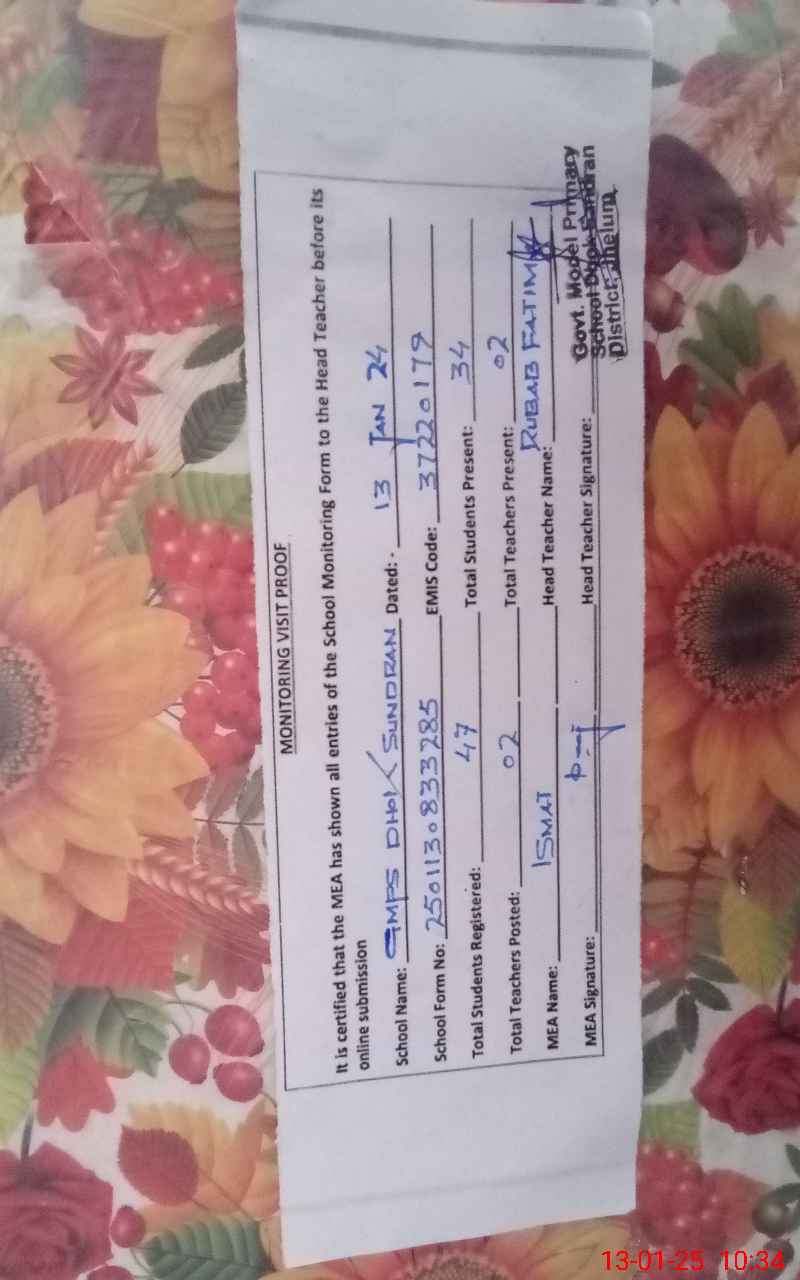 MONITORING VISIT PROOF
It is certified that the MEA has shown all entries of the School Monitoring Form to the Head Teacher before its
online submission
School Name: GMPS DHOK SUNDRAN Dated: - 13 JAN 24
School Form No: 2501130833285 EMIS Code: 37220179
Total Students Registered: 47 Total Students Present: 34
Total Teachers Posted: 02 Total Teachers Present: 02
MEA Name: ISMAT Head Teacher Name: RUBAB FATIMA
MEA Signature: Head Teacher Signature:
Govt. Model Primary
School Dhok Sundran
District Jhelum
13-01-25 10:34